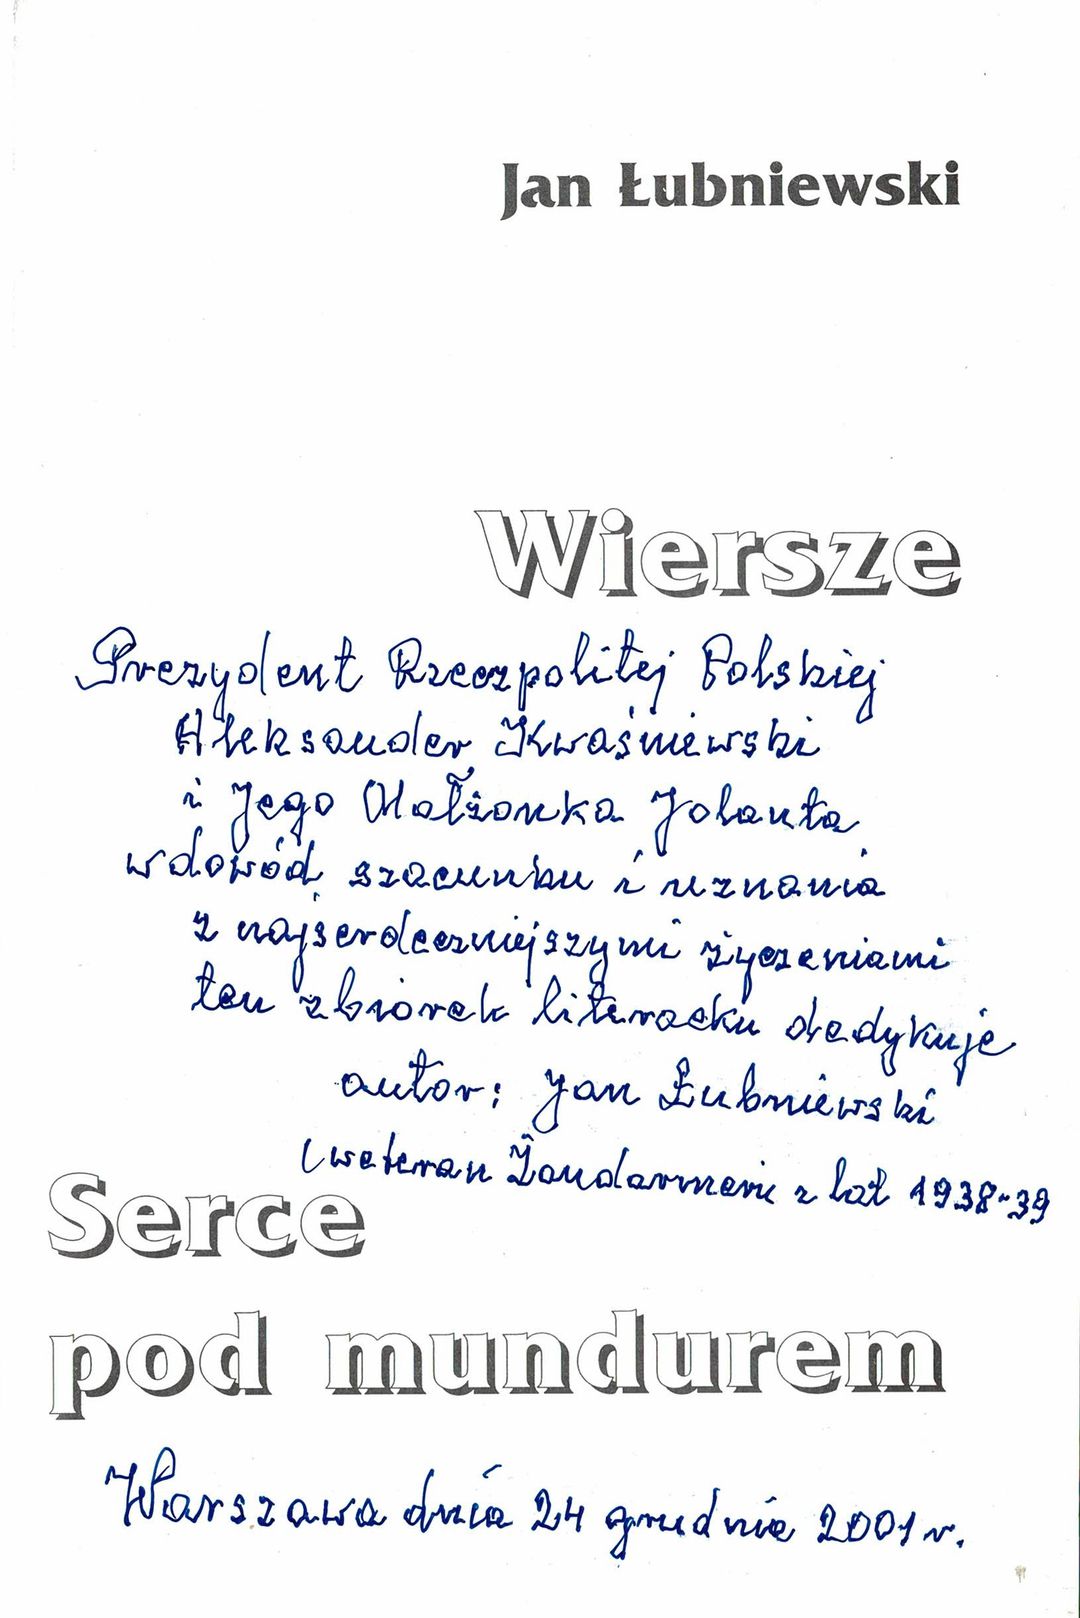 Jan Łubniewski
Wiersze
Prezydent Rzeczpolitej Polskiej
Aleksander Kwaśniewski
i Jego Małżonka Jolanta
w dowód szacunku i uznania
z najserdeczniejszymi życzeniami
ten zbiorek literacku dedykuje
autor: Jan Łubniewski
(weteran Żandarmerii z lat 1938-39
Serce
pod mundurem
Warszawa dnia 24 grudnia 2001 r.